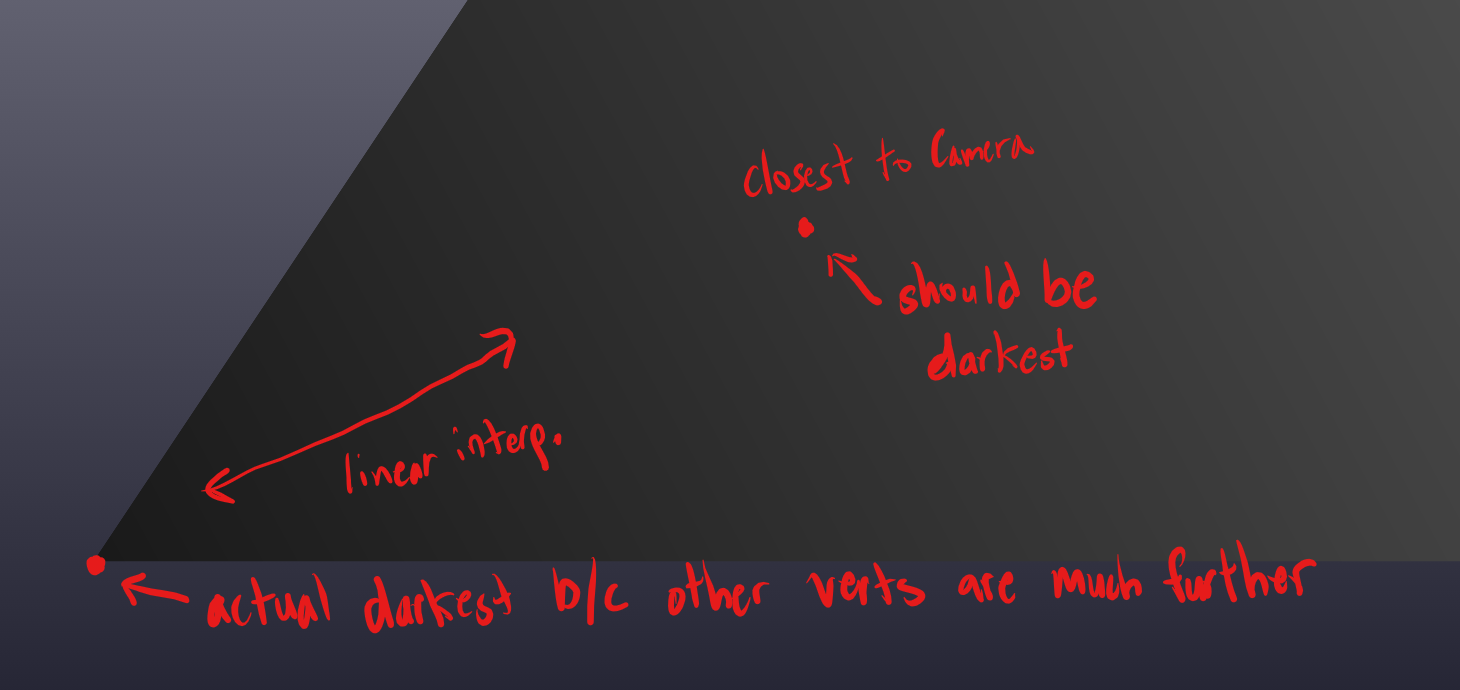 closest to Camera
should be
darkest
linear interp.
actual darkest b/c other verts are much further